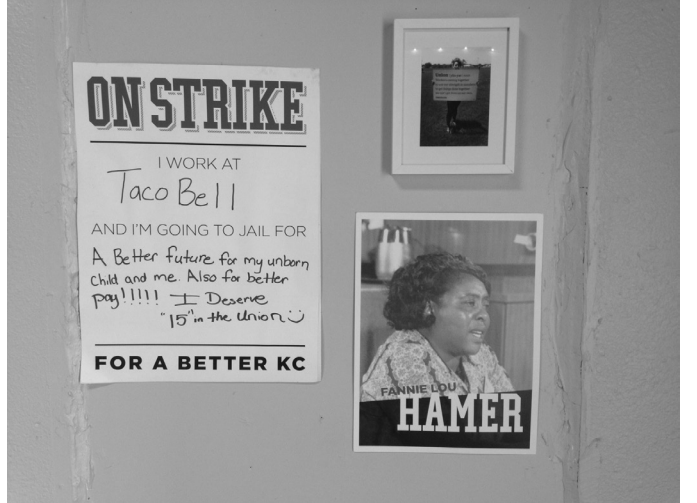 ON STRIKE
I WORK AT
Taco Bell
AND I'M GOING TO JAIL FOR
A Better future for my unborn
child and me. Also for better
pay!!!!! I Deserve
"15" in the Union
FOR A BETTER KC
FANNIE LOU
HAMER